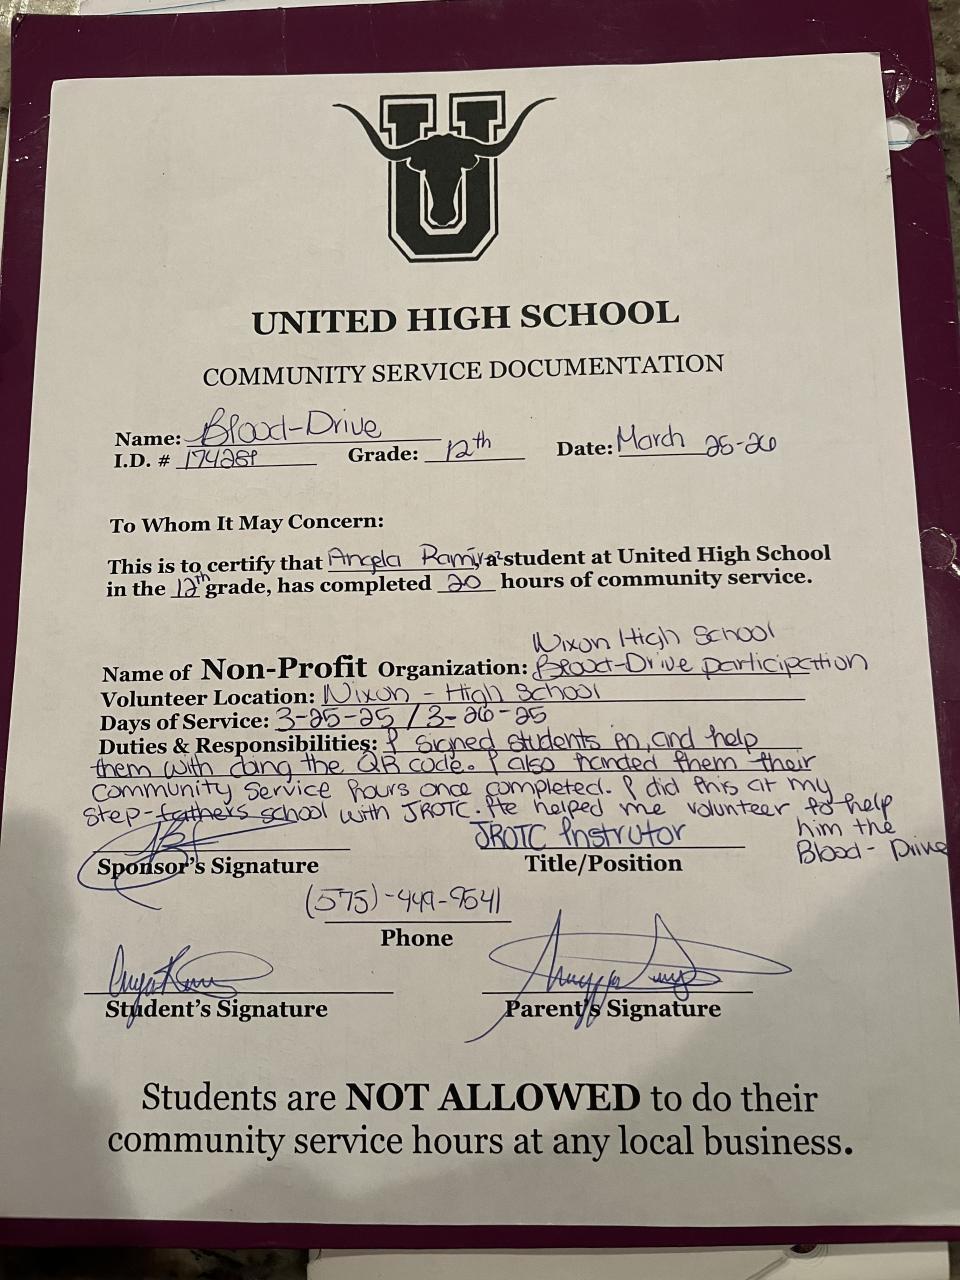 U
UNITED HIGH SCHOOL
COMMUNITY SERVICE DOCUMENTATION
Name: Blood-Drive
I.D. # Grade: 12th Date: March 25-26
To Whom It May Concern:
This is to certify that Angela Ramirez a student at United High School
in the 12th grade, has completed 20 hours of community service.
Nixon High School
Name of Non-Profit Organization: Blood-Drive participation
Volunteer Location: Nixon - High School
Days of Service: 3-25-25 / 3-26-25
Duties & Responsibilities: I signed students in, and help
them with doing the QR code. I also handed them their
Community Service hours once completed. I did this at my
step-fathers school with JROTC. He helped me volunteer to help
him the
Blood-Drive
JROTC Instrutor
Sponsor's Signature Title/Position
(575)-449-9541
Phone
Student's Signature Parent's Signature
Students are NOT ALLOWED to do their
community service hours at any local business.